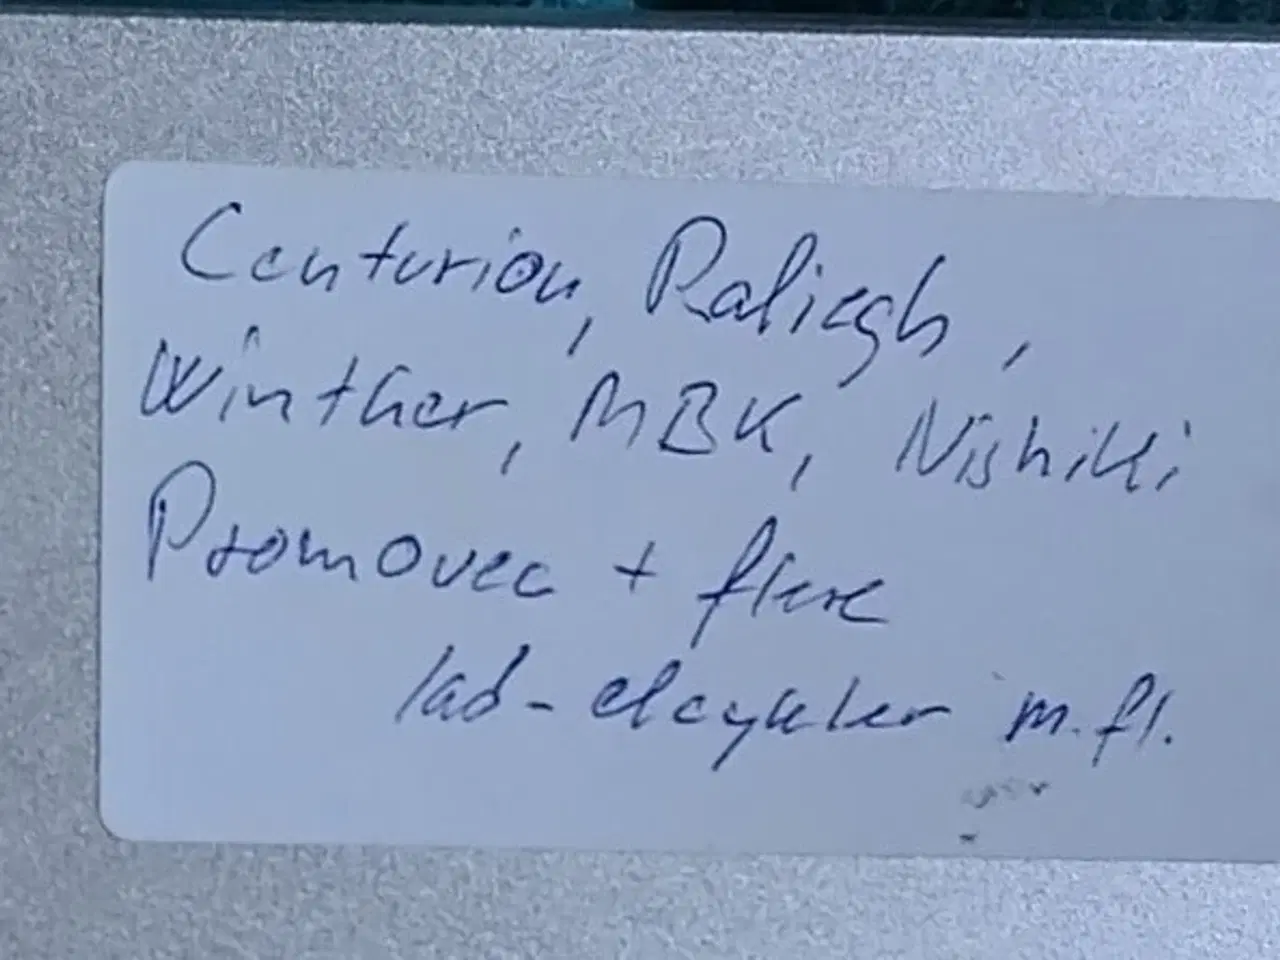 Centurion, Raliegh,
Winther, MBK, Nishiki
Promovec + flere
lad-elcykler m.fl.